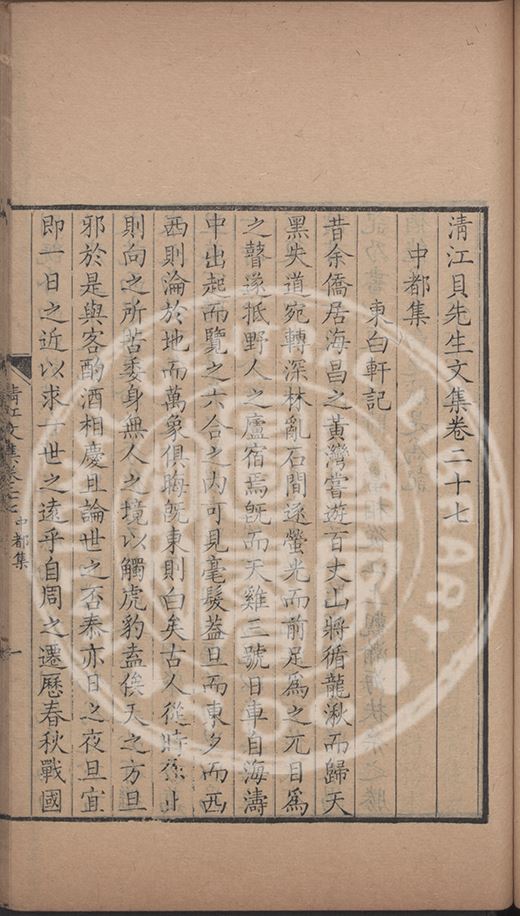 清江貝先生文集卷二十七
中都集
東白軒記
昔余僑居海昌之黃灣嘗遊百丈山將循龍湫而歸天
黑失道宛轉深林亂石間逐螢光而前足為之兀目為
之瞽遂抵野人之廬宿焉旣而天雞三號日車自海濤
中出起而覽之六合之內可見毫髮蓋旦而東夕而西
西則淪於地而萬象俱晦旣東則白矣古人從時
則向之所苦委身無人之境以觸虎豹盍俟天之方旦
邪於是與客酌酒相慶且論世之否泰亦日之夜旦宜
即一日之近以求一世之遠乎自周之遷歷春秋戰國
清江文集卷二十七
中都集
一